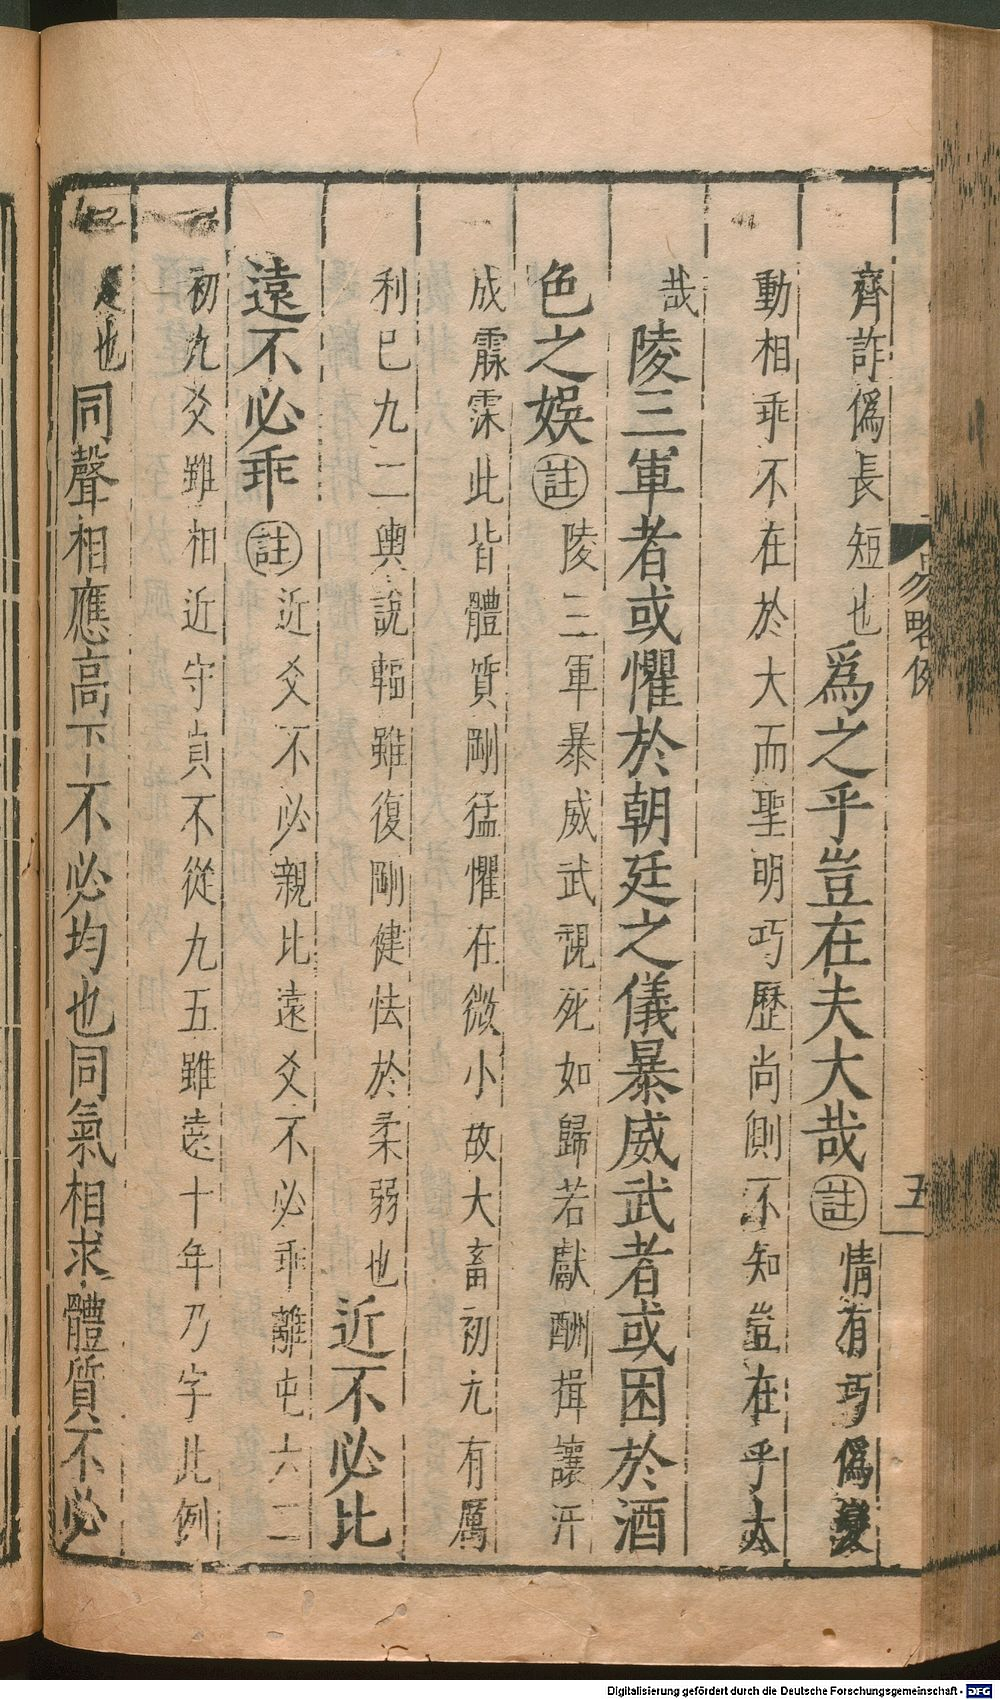 齊詐僞長短也爲之乎豈在夫大哉註情有巧僞變
動相乖不在於大而聖明巧歷尚測不知豈在乎大
哉陵三軍者或懼於朝廷之儀暴威武者或困於酒
色之娛註陵三軍暴威武視死如歸若獻酬揖讓汗
成霡霂此皆體質剛猛懼在微小故大畜初九有厲
利已九二輿說輻雖復剛健怯於柔弱也近不必比
遠不必乖註近爻不必親比遠爻不必乖離屯六二
初九爻雖相近守貞不從九五雖遠十年乃字此例
是也同聲相應高下不必均也同氣相求體質不必
易略例
五
Digitalisierung gefördert durch die Deutsche Forschungsgemeinschaft - DFG